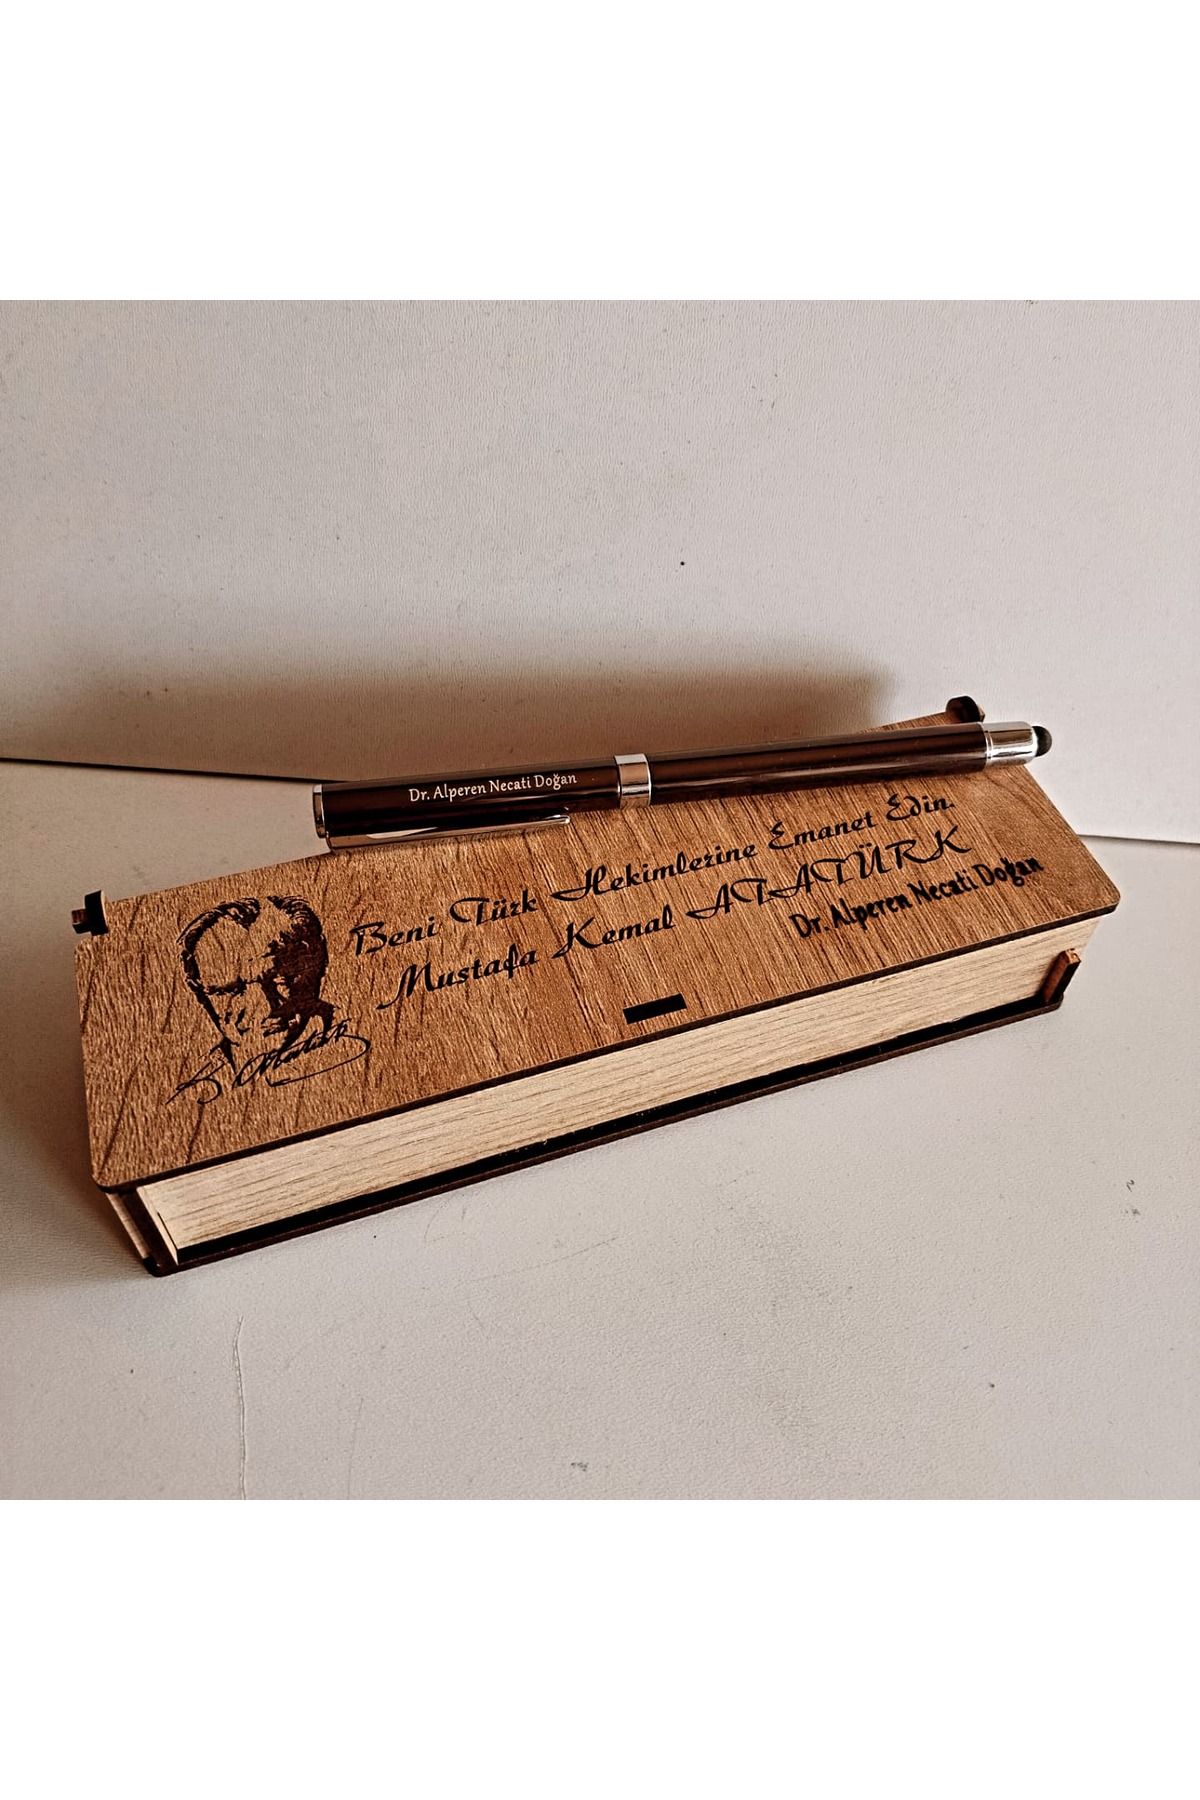 Dr. Alperen Necati Doğan
Beni Türk Hekimlerine Emanet Edin.
Mustafa Kemal ATATÜRK
Dr. Alperen Necati Doğan